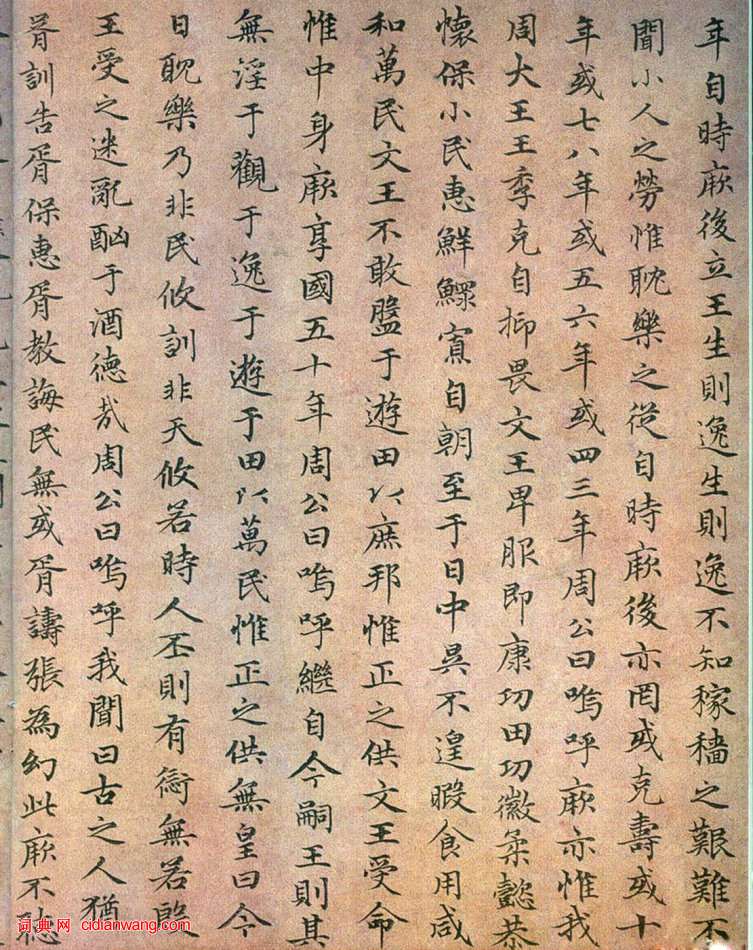 年自時厥後立王生則逸生則逸不知稼穡之艱難不
聞小人之勞惟耽樂之從自時厥後亦罔或克壽或十
年或七八年或五六年或四三年周公曰嗚呼厥亦惟我
周大王王季克自抑畏文王卑服即康功田功徽柔懿恭
懷保小民惠鮮鰥寡自朝至于日中昃不遑暇食用咸
和萬民文王不敢盤于遊田以庶邦惟正之供文王受命
惟中身厥享國五十年周公曰嗚呼繼自今嗣王則其
無淫于觀于逸于遊于田以萬民惟正之供無皇曰今
日耽樂乃非民攸訓非天攸若時人丕則有愆無若殷
王受之迷亂酗于酒德哉周公曰嗚呼我聞曰古之人猶
胥訓告胥保惠胥教誨民無或胥譸張為幻此厥不聽
词典网 cidianwang.com